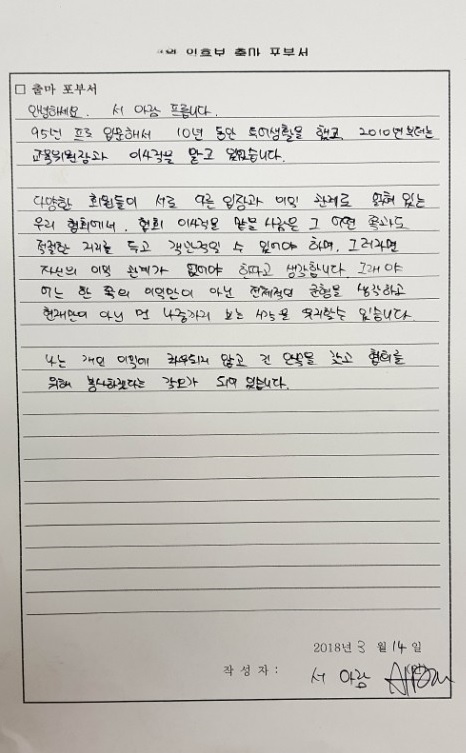 이후보 출마 포부서
□ 출마 포부서
안녕하세요. 서 아람 프롭니다.
95년 프로 입문해서 10년 동안 투어생활을 했고, 2010년부터는
교육위원장과 이사직을 맡고 있습니다.
다양한 회원들이 서로 다른 입장과 이익 관계로 얽혀 있는
우리 협회에서, 협회 이사직을 맡을 사람은 그 어떤 쪽과도
적절한 거리를 두고 객관적일 수 있어야 하며, 그러려면
자신의 이익 관계가 없어야 한다고 생각합니다. 그래야
어느 한 쪽의 이익만이 아닌 전체적인 균형을 생각하고
현재만이 아닌 먼 나중까지 보는 시각을 유지할수 있습니다.
나는 개인 이익에 좌우되지 않고 긴 안목을 갖고 협회를
위해 봉사하겠다는 각오가 되어 있습니다.
2018년 3 월 14 일
작 성 자 : 서 아람 (인)